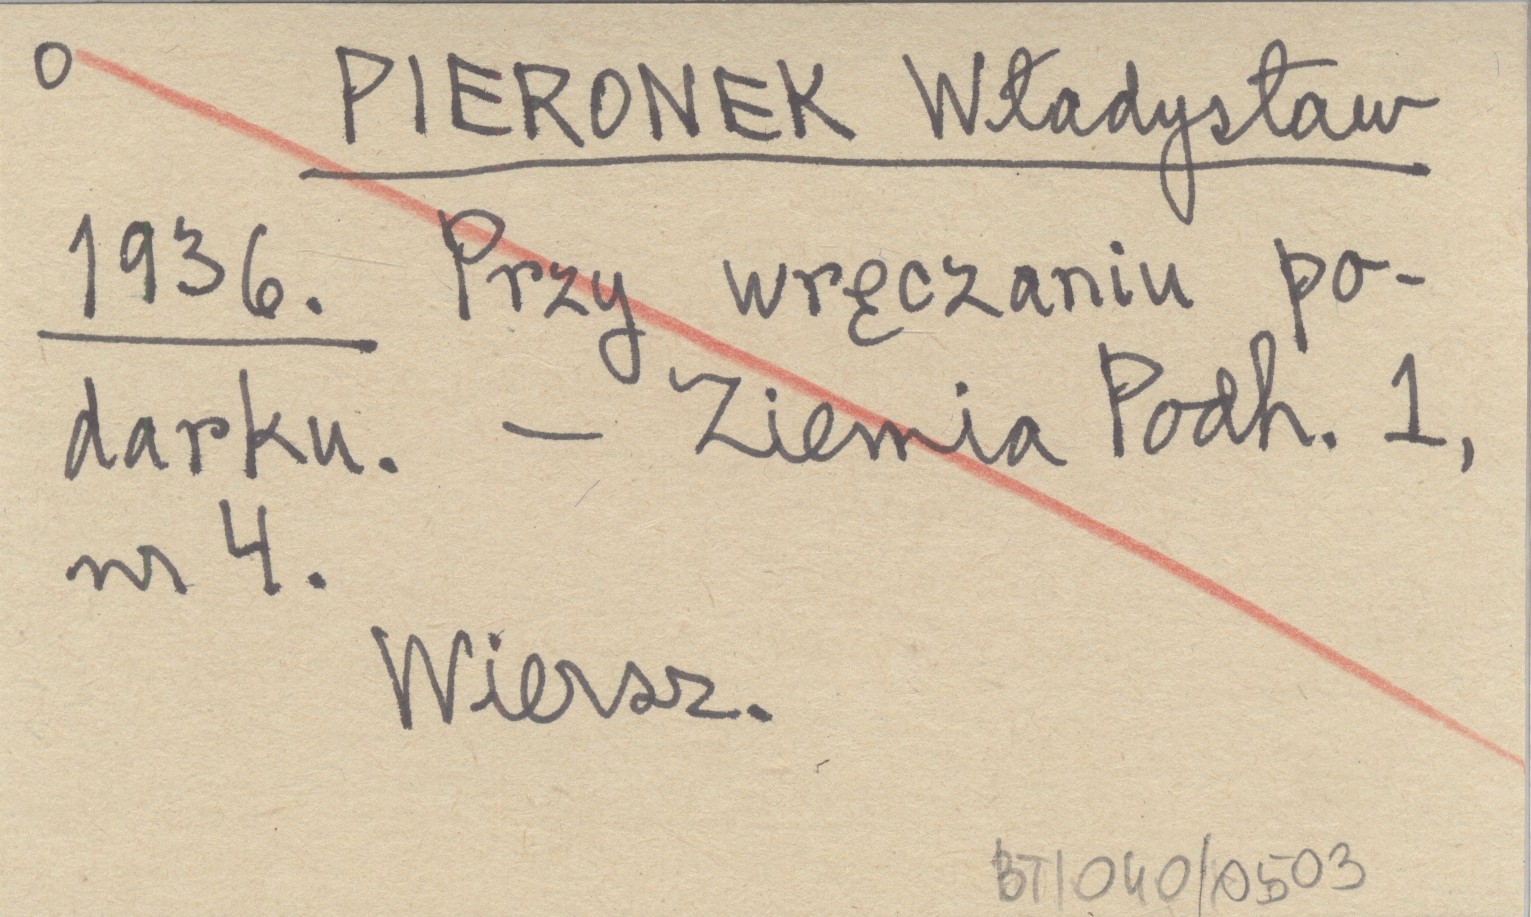 O PIERONEK Władysław
1936. Przy wręczaniu po-
darku. — Ziemia Podh. 1,
nr 4.
Wiersz.
BT/040/0503